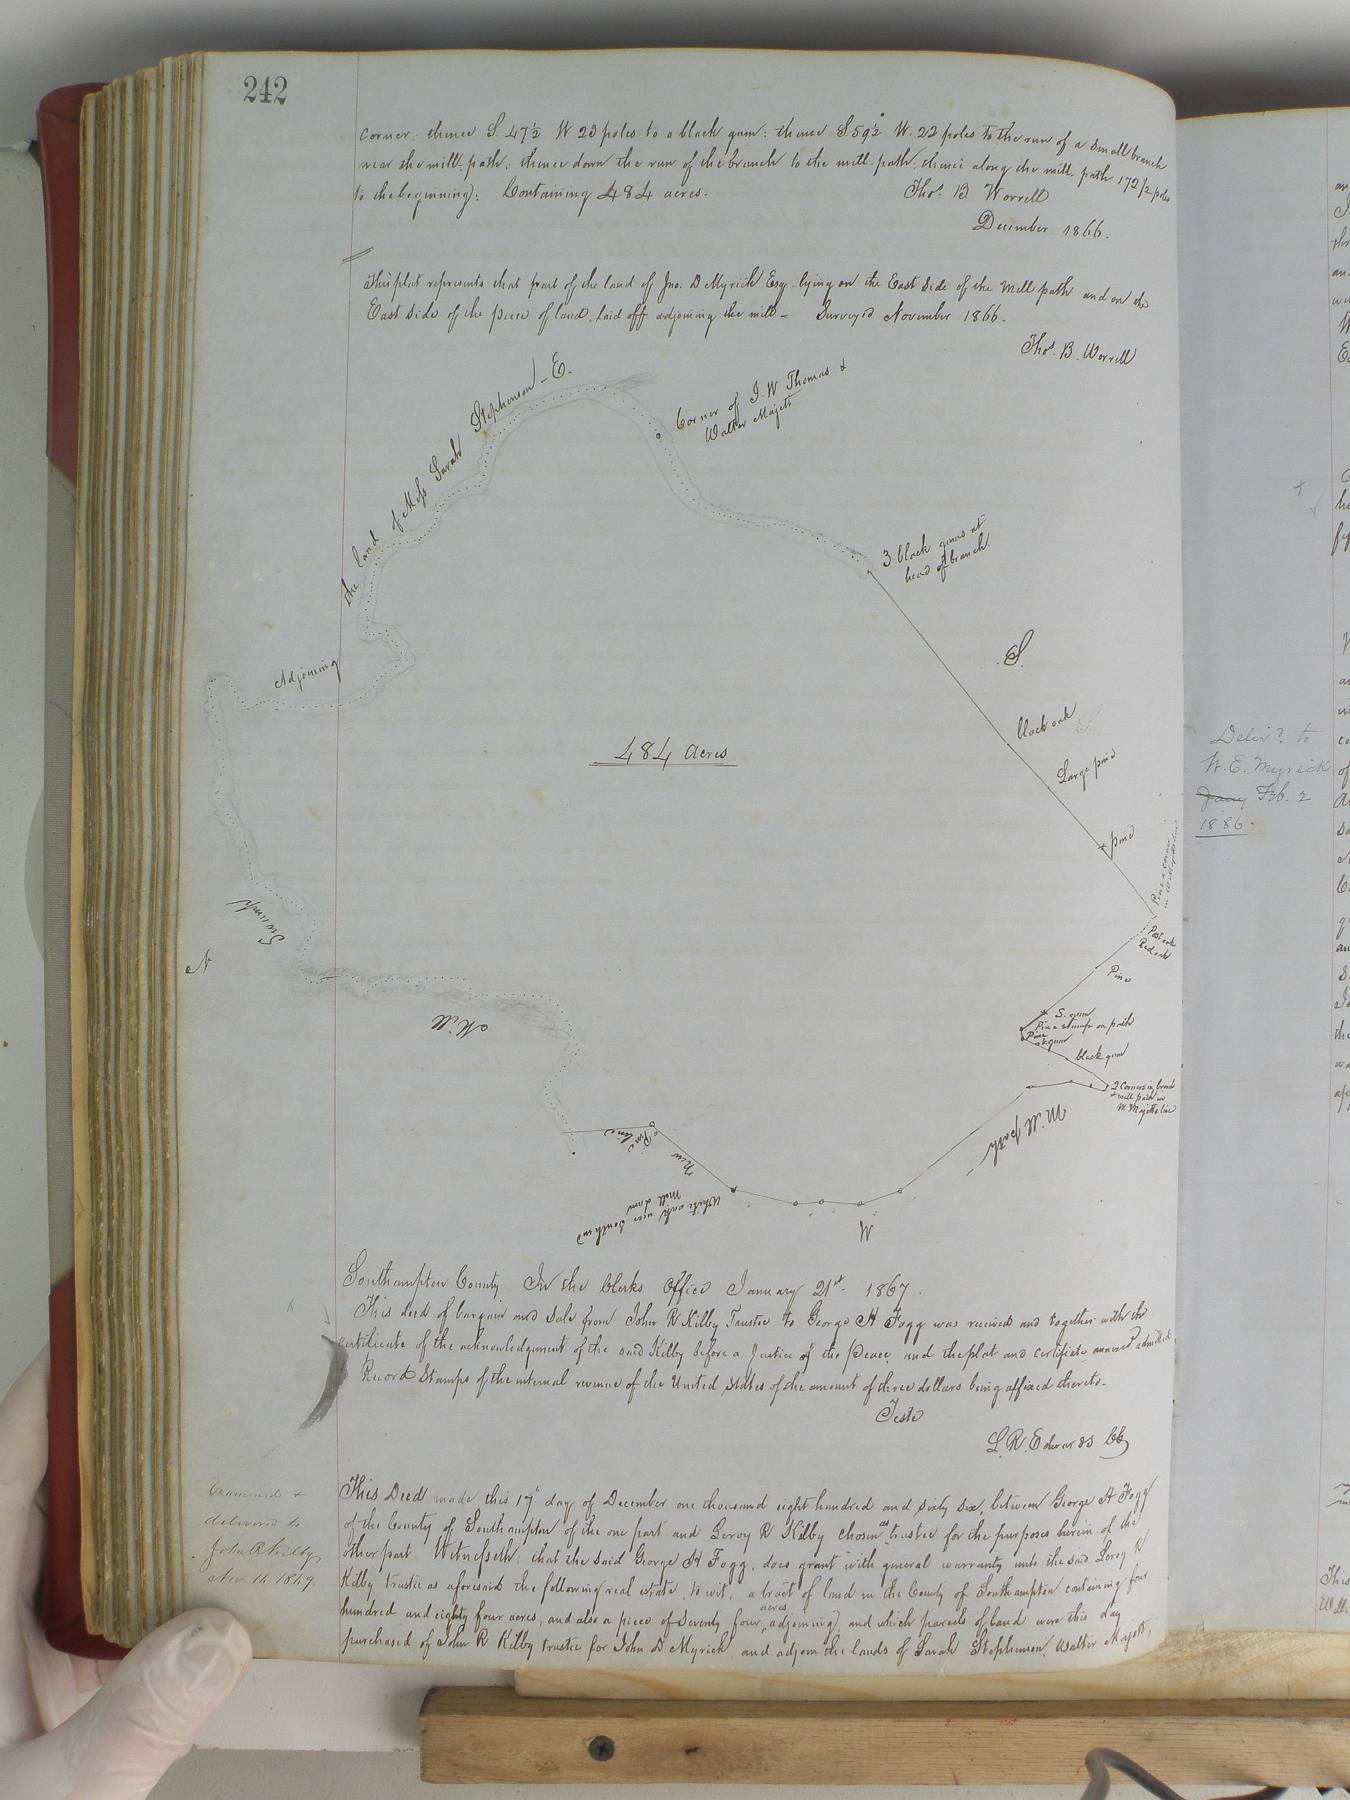 242
corner: thence S. 47½ W 23 poles to a black gum: thence S 59½ W. 22 poles to the run of a small branch
near the mill path: thence down the run of the branch to the mill path: thence along the mill path 172½ poles
to the beginning: Containing 484 acres.
Thos. B Worrell
December 1866.
This plat represents that part of the land of Jno. D Myrick Esqr. lying on the East side of the mill path and on the
East side of the piece of land laid off adjoining the mill - Surveyed November 1866.
Thos. B. Worrell
the land of Miss Sarah Stephenson - E.
Corner of J. W Thomas &
Walter Majett
3 black gums at
head of branch
S.
black oak
Large pine
pine
Adjoining
484 acres
Pine a corner
Post oak
Red oak
Pine
S. gum
Pine stump on path
Pine
gum
black gum
2 Corners in branch
& mill path in
W. Majetts line
Swamp
N
Mill
Mill path
Pine
line
New
White oak near South end
Mill dam
W
Southampton County, In the Clerks Office January 21st 1867.
This deed of bargain and sale from John R Kilby Trustee to George H Fogg was received and together with the
certificate of the acknowledgment of the said Kilby before a Justice of the Peace, and the plat and certificate annexed admitted
Record Stamps of the internal revenue of the United States of the amount of three dollars being affixed thereto.
Teste
L. R. Edwards CC
Examined &
delivered to
John R Kilby
Nov. 16. 1869.
This Deed made this 17th day of December one thousand eight hundred and sixty six, between George H Fogg
of the County of Southampton of the one part and Leroy R Kilby chosen as trustee for the purposes herein of the
other part. Witnesseth: that the said George H Fogg, does grant with general warranty unto the said Leroy R
Kilby trustee as aforesaid the following real estate, to wit, a tract of land in the County of Southampton containing four
hundred and eighty four acres, and also a piece of Seventy four acres, adjoining, and which parcels of land were this day
purchased of John R Kilby trustee for John D Myrick, and adjoin the lands of Sarah Stephenson, Walter Majett,
Deliv'd to
W. E. Myrick
Jany Feb. 2
1886.